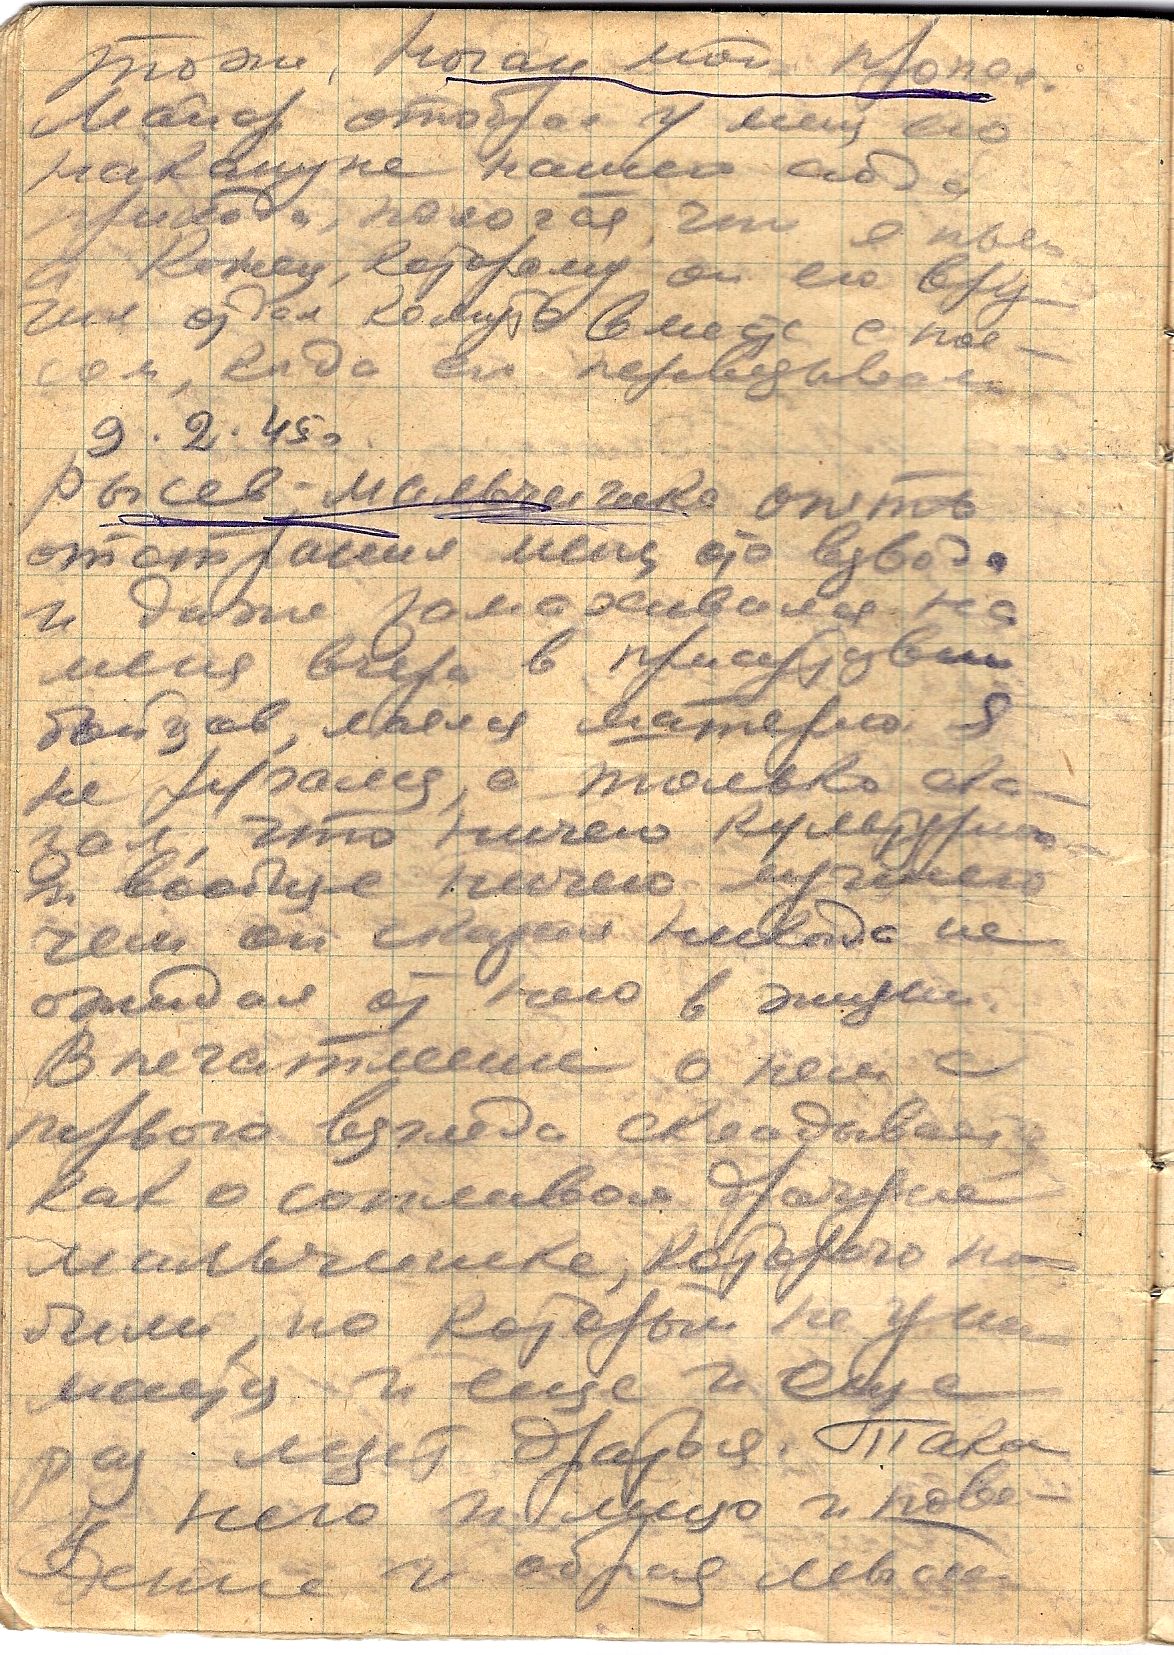 тоже, наган мой пропал.
Майор отобрал у меня его
накануне нашего сюда
прихода, полагая, что я пьян
а Кожец, которому он его вру
чил отдал кому-то вместе с поя-
сом, когда он перевязывал
9.2.45г.
Рысев-мальчишка опять
отстранил меня от взвода
и даже замахивался на
меня вчера в присутствии
бойцов, маял матерно. Я
не ругался, а только ска-
зал, что ничего культурного
и вообще ничего лучшего
чем он сказал никогда не
ожидал от него в жизни.
Впечатление о нем с
первого взгляда складывается
как о сопливом драчуне
мальчишке, которого по-
били, но который не уни-
мается и еще и еще
раз лезет драться. Таков
у него и лицо и пове-
дение и образ мысли